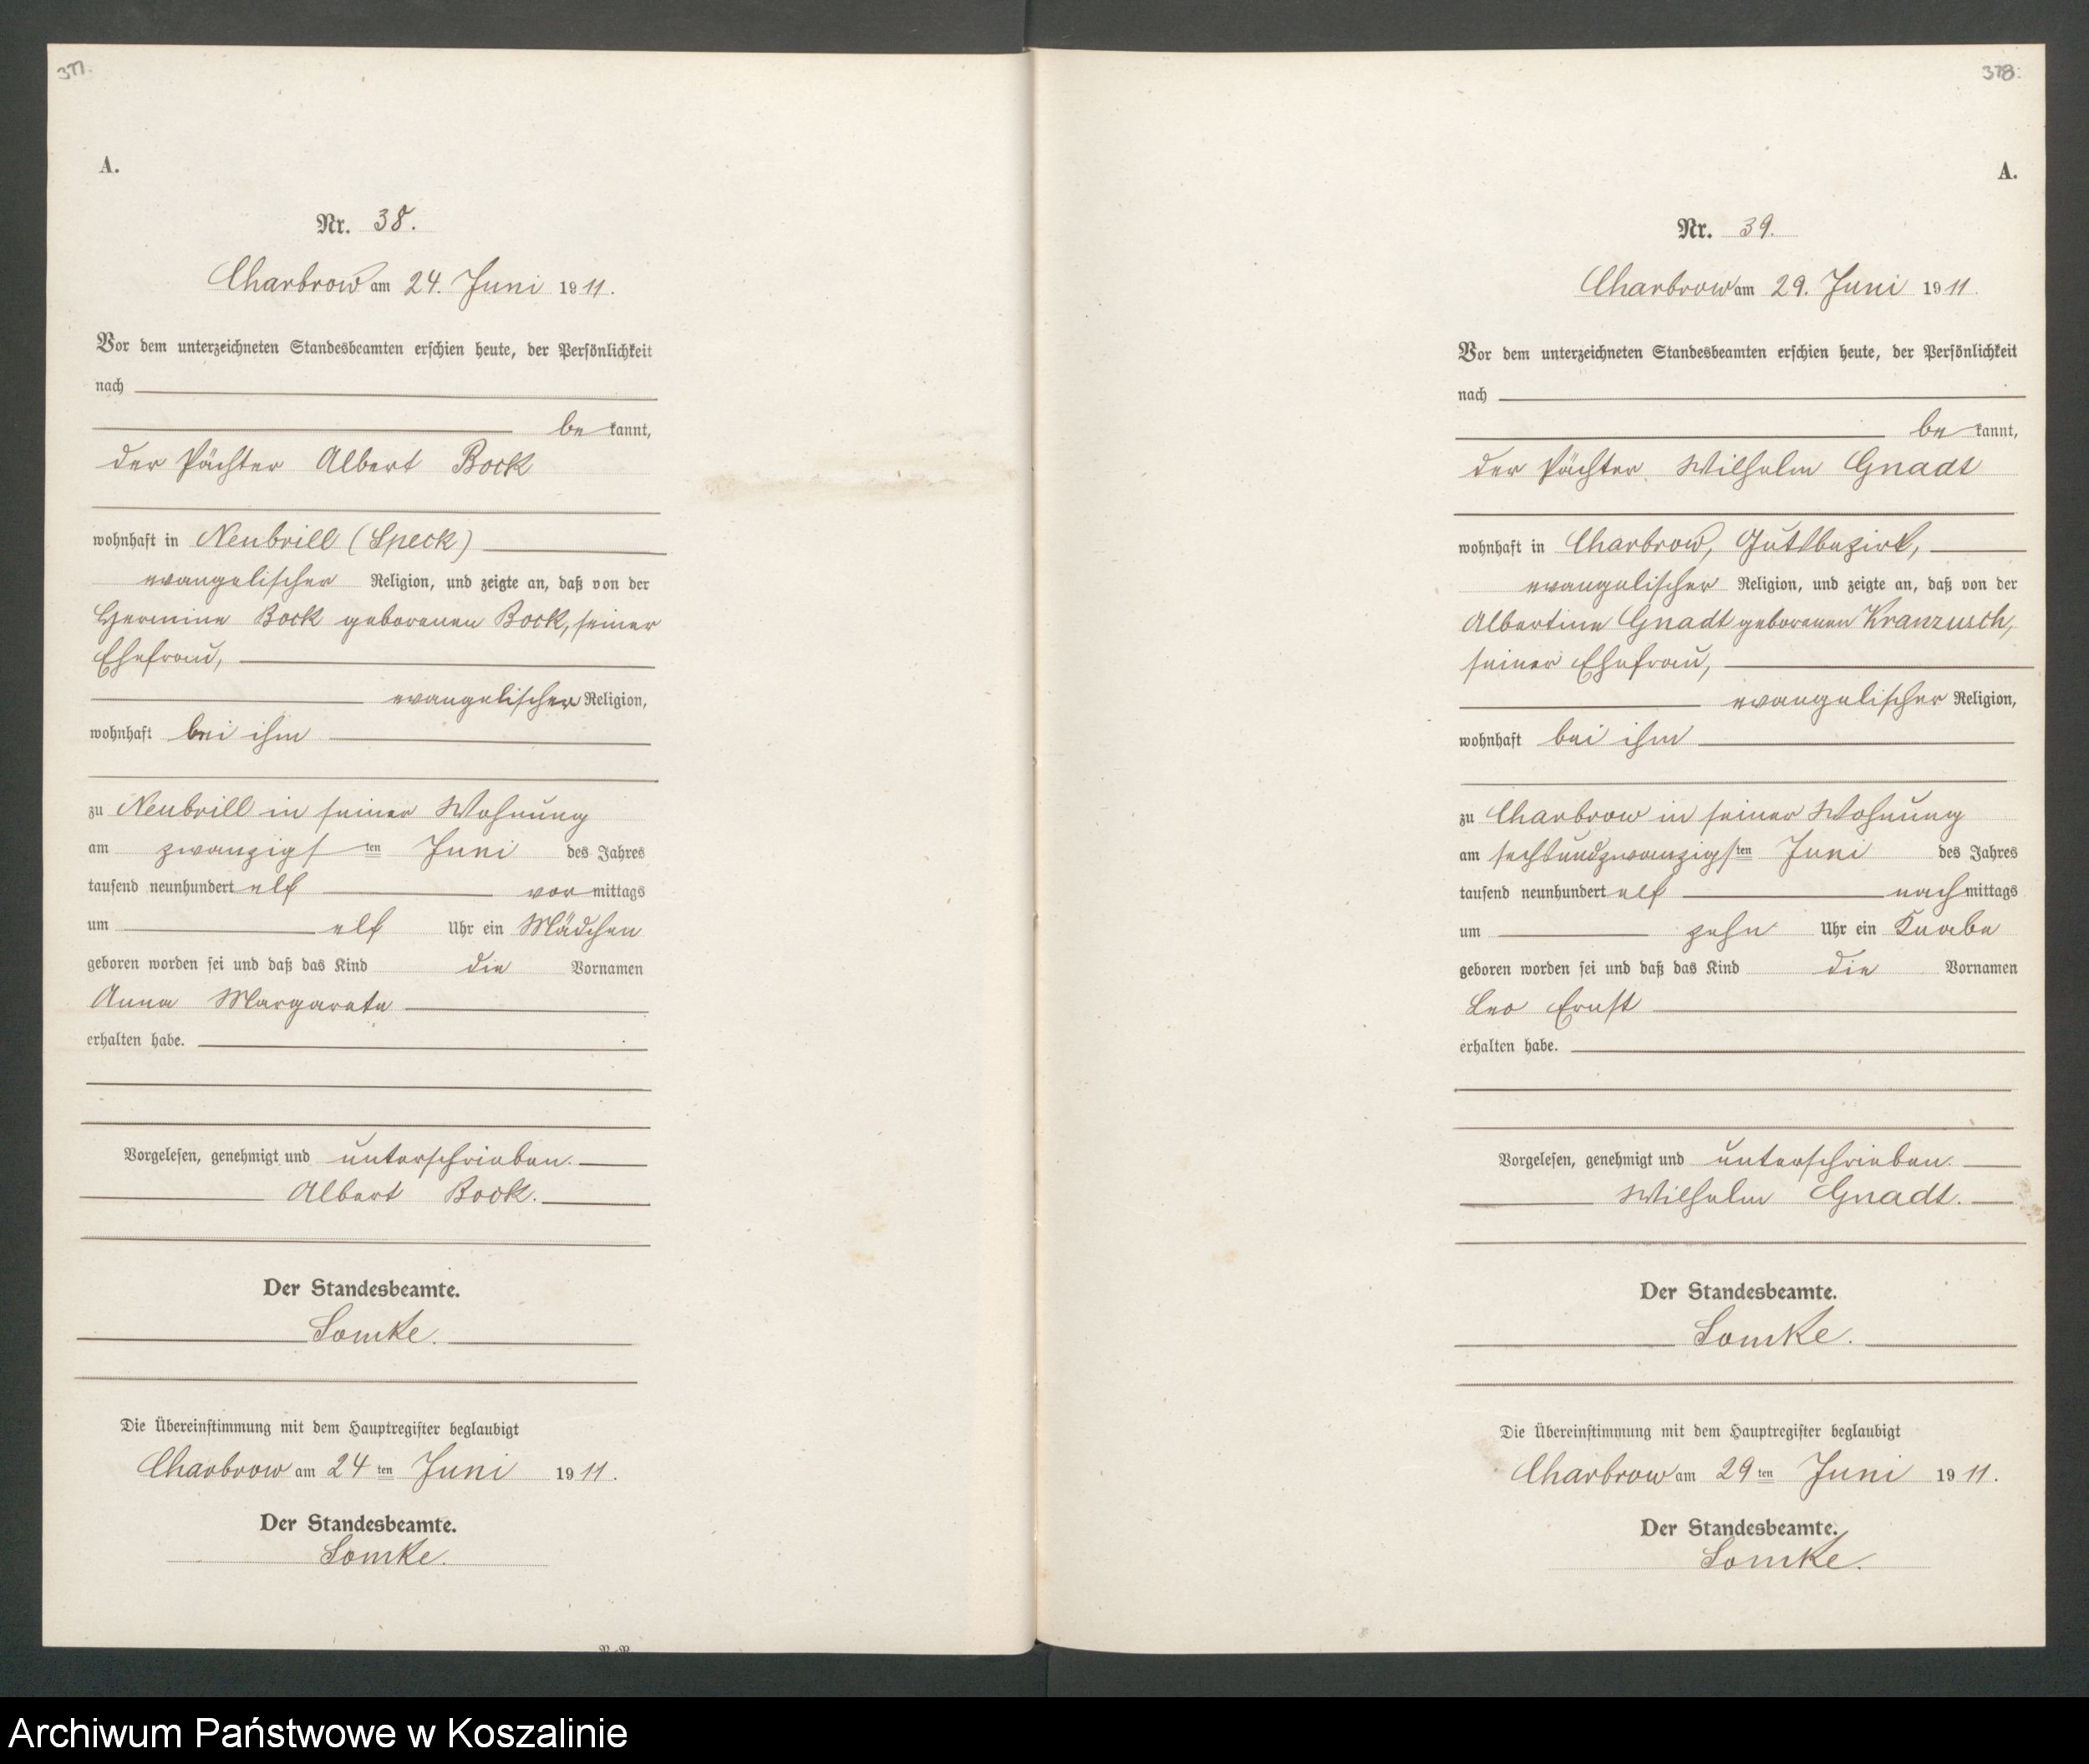 377.
A.
Nr. 38.
Charbrow am 24. Juni 1911.
Vor dem unterzeichneten Standesbeamten erschien heute, der Persönlichkeit
nach
be kannt,
der Pächter Albert Bock
wohnhaft in Neubrill (Speck)
evangelischer Religion, und zeigte an, daß von der
Hermine Bock geborenen Bock, seiner
Ehefrau,
evangelischer Religion,
wohnhaft bei ihm
zu Neubrill in seiner Wohnung
am zwanzigsten Juni des Jahres
tausend neunhundert elf vormittags
um elf Uhr ein Mädchen
geboren worden sei und daß das Kind die Vornamen
Anna Margarete
erhalten habe.
Vorgelesen, genehmigt und unterschrieben.
Albert Bock.
Der Standesbeamte.
Lomke.
Die Übereinstimmung mit dem Hauptregister beglaubigt
Charbrow am 24ten Juni 1911.
Der Standesbeamte.
Lomke.
378.
A.
Nr. 39.
Charbrow am 29. Juni 1911.
Vor dem unterzeichneten Standesbeamten erschien heute, der Persönlichkeit
nach
be kannt,
der Pächter Wilhelm Gnadt
wohnhaft in Charbrow, Gutsbezirk,
evangelischer Religion, und zeigte an, daß von der
Albertine Gnadt geborenen Kranzusch,
seiner Ehefrau,
evangelischer Religion,
wohnhaft bei ihm
zu Charbrow in seiner Wohnung
am sechsundzwanzigsten Juni des Jahres
tausend neunhundert elf nachmittags
um zehn Uhr ein Knabe
geboren worden sei und daß das Kind die Vornamen
Leo Ernst
erhalten habe.
Vorgelesen, genehmigt und unterschrieben.
Wilhelm Gnadt.
Der Standesbeamte.
Lomke.
Die Übereinstimmung mit dem Hauptregister beglaubigt
Charbrow am 29ten Juni 1911.
Der Standesbeamte.
Lomke.
Archiwum Państwowe w Koszalinie